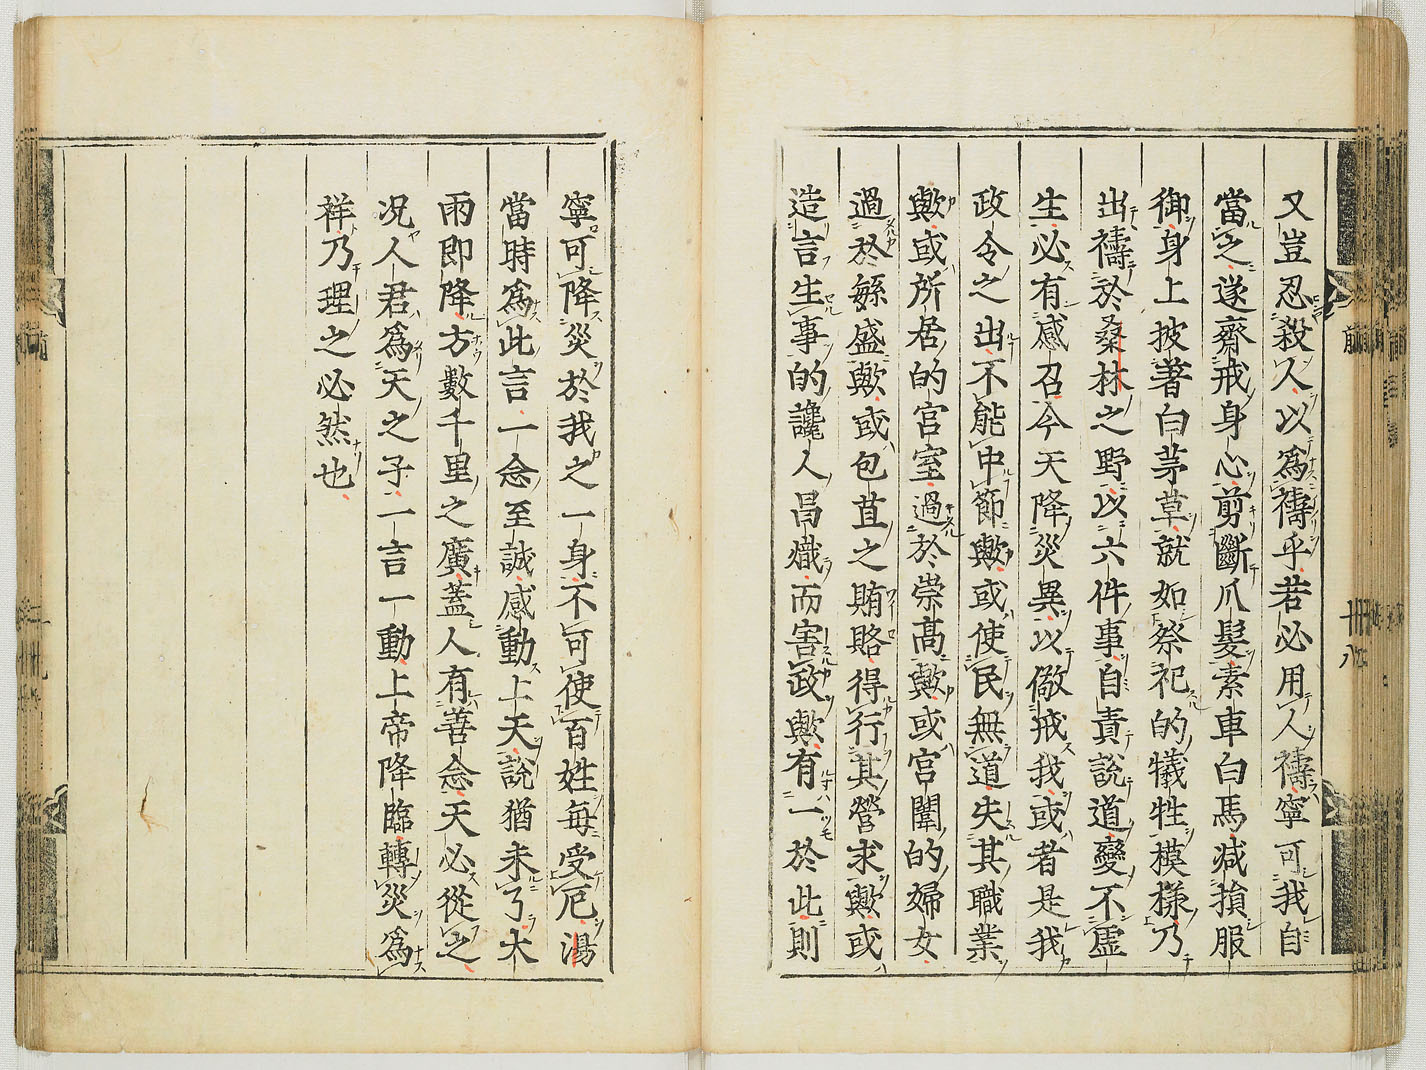 又豈忍殺人以爲禱乎若必用人禱寧可我自
當之遂齋戒身心剪斷爪髮素車白馬減損服
御身上披著白茅草就如祭祀的犧牲模樣乃
出禱於桑林之野以六件事自責說道變不虛
生必有感召今天降災異以儆戒我或者是我
政令之出不能中節歟或使民無道失其職業
歟或所居的宮室過於崇高歟或宮闈的婦女
過於繁盛歟或包苴之賄賂得行其營求歟或
造言生事的讒人昌熾而害政歟有一於此則
寧可降災於我之一身不可使百姓每受厄湯
當時爲此言一念至誠感動上天說猶未了大
雨即降方數千里之廣蓋人有善念天必從之
况人君爲天之子一言一動上帝降臨轉災爲
祥乃理之必然也